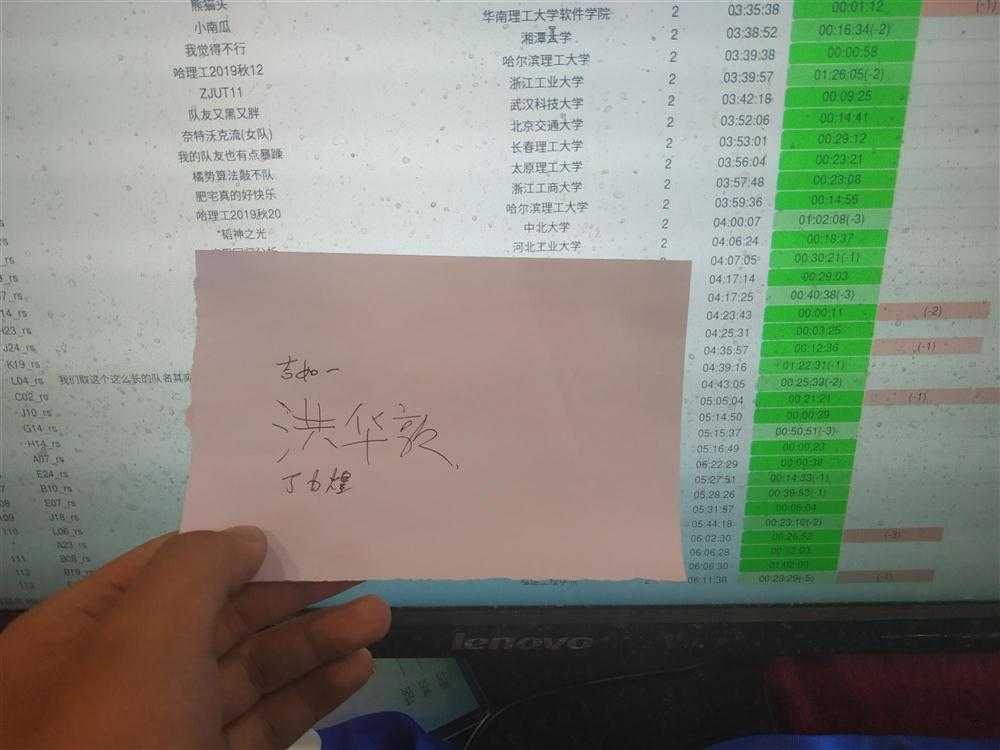 熊猫头 华南理工大学软件学院 2 03:35:38 00:01:12 (-1)
小南瓜 湘潭大学 2 03:38:52 00:16:34(-2)
我觉得不行 哈尔滨理工大学 2 03:39:38 00:00:58
哈理工2019秋12 浙江工业大学 2 03:39:57 01:26:05(-2)
ZJUT11 武汉科技大学 2 03:42:18 00:09:25
队友又黑又胖 北京交通大学 2 03:52:06 00:14:41
奈特沃克流(女队) 长春理工大学 2 03:53:01 00:29:12
我的队友也有点暴躁 太原理工大学 2 03:56:04 00:23:21
橘势算法敲不队 浙江工商大学 2 03:57:48 00:23:08
肥宅真的好快乐 哈尔滨理工大学 2 03:59:36 00:14:56
哈理工2019秋20 中北大学 2 04:00:07 01:02:08(-3)
*韬神之光 河北工业大学 2 04:06:24 00:18:37
04:07:05 00:30:21(-1)
04:17:14 00:29:03
04:17:25 00:40:38(-3)
04:23:43 00:00:11 (-2)
H23_rs 04:25:31 00:03:25
J24_rs 04:35:57 00:12:36 (-1)
K19_rs 04:39:16 01:22:31(-1)
L04_rs 我们取这个这么长的队名其实 04:43:05 00:25:33(-2)
C02_rs 05:05:04 00:21:21 (-1)
J10_rs 05:14:50 00:00:39
G14_rs 05:15:37 00:50:51(-3)
H14_rs 05:16:49 00:00:23
A07_rs 05:22:29 00:00:38
E24_rs 05:27:51 00:14:33(-1)
B10_rs 05:28:26 00:39:53(-1)
E07_rs 05:31:57 00:05:04
J18_rs 05:44:18 00:23:10(-2)
110 L06_rs 06:02:30 00:26:52 (-3)
A23_rs 06:06:28
111 B08_rs 06:06:30
112 B19_rs 2 06:11:38 00:23:29(-5)
113
吉如一
洪华敦
丁力煌
lenovo